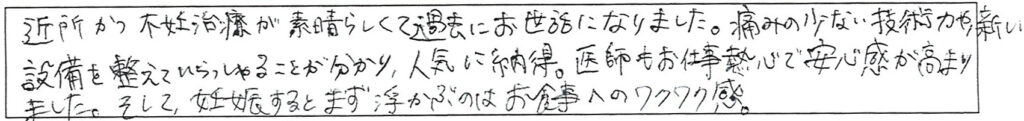 近所かつ不妊治療が素晴らしくて過去にお世話になりました。痛みの少ない技術力や新しい
設備を整えていらっしゃることが分かり、人気に納得。医師もお仕事熱心で安心感が高まり
ました。そして、妊娠するとまず浮かぶのはお食事へのワクワク感。